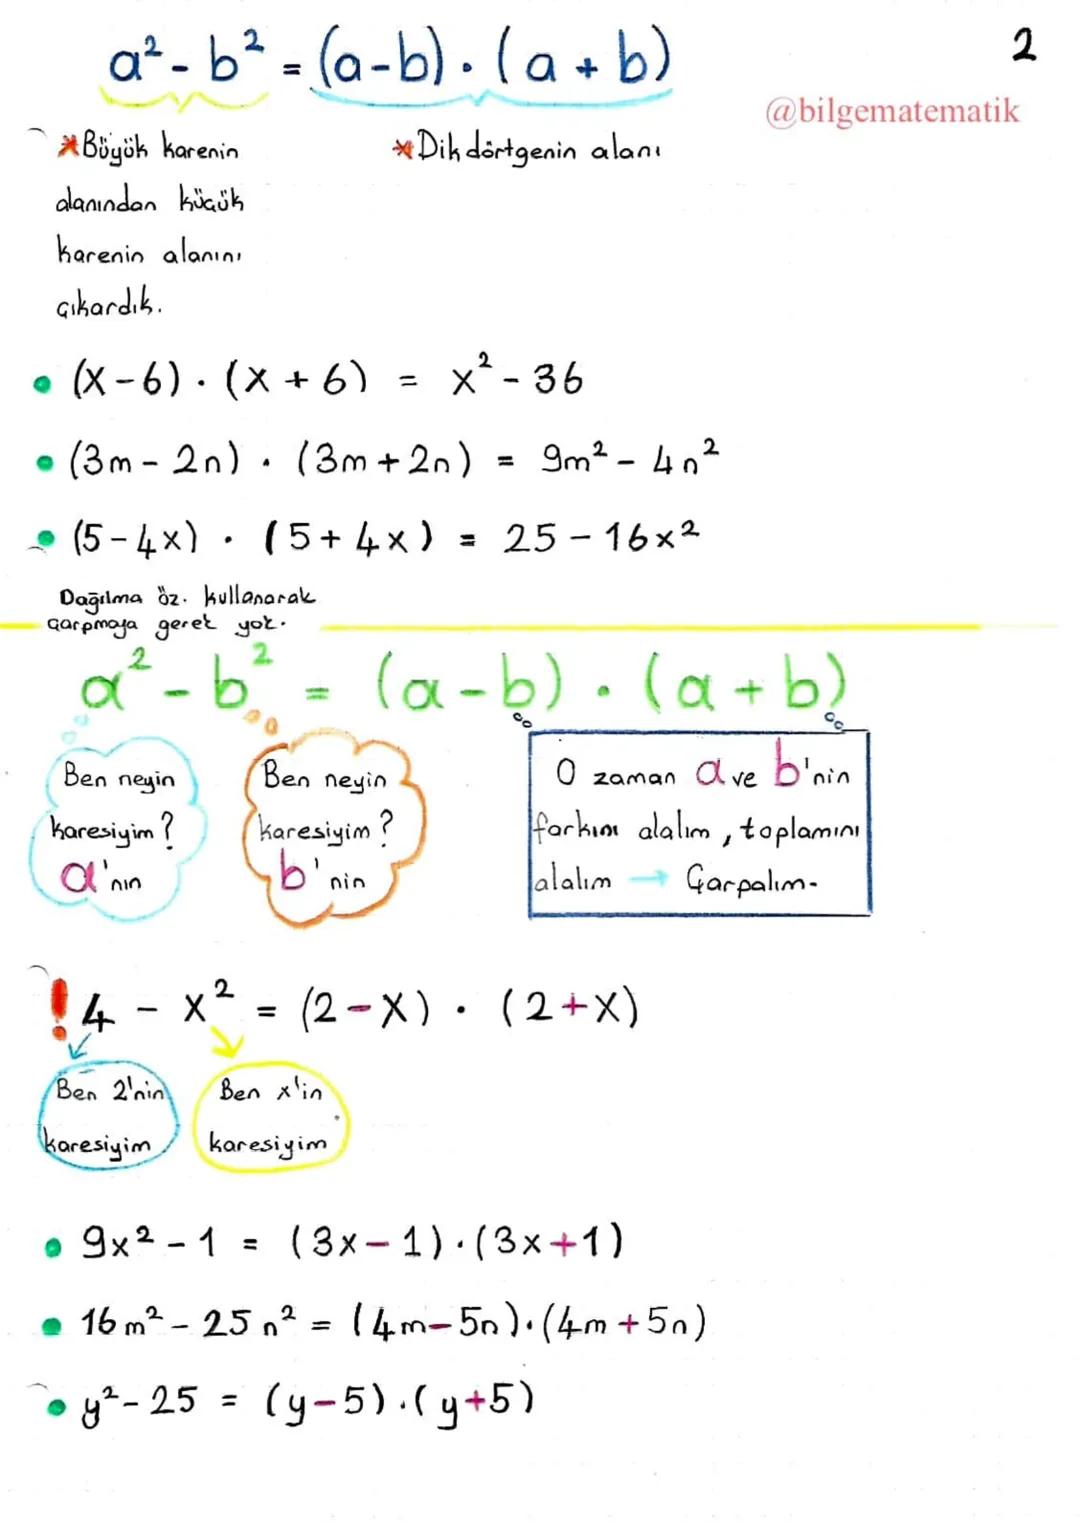 a² - b² = (a-b) . (a + b)
2
@bilgematematik
*Büyük karenin
*Dikdörtgenin alanı
alanından küçük
karenin alanını
çıkardık.
(x-6) . (x + 6) = x² - 36
(3m - 2n) . (3m + 2n) = 9m² - 4n²
(5-4x) . (5+4x) = 25 - 16x²
Dağılma öz. kullanarak
çarpmaya gerek yok.
a² - b² = (a-b) . (a+b)
Ben neyin
karesiyim?
a'nın
Ben neyin
karesiyim?
b'nin
O zaman a ve b'nin
farkını alalım, toplamını
alalım → Çarpalım.
! 4 - x² = (2-x) . (2+x)
Ben 2'nin
karesiyim
Ben x'in
karesiyim
9x² - 1 = (3x-1).(3x+1)
16m² - 25n² = (4m-5n).(4m+5n)
y² - 25 = (y-5).(y+5)